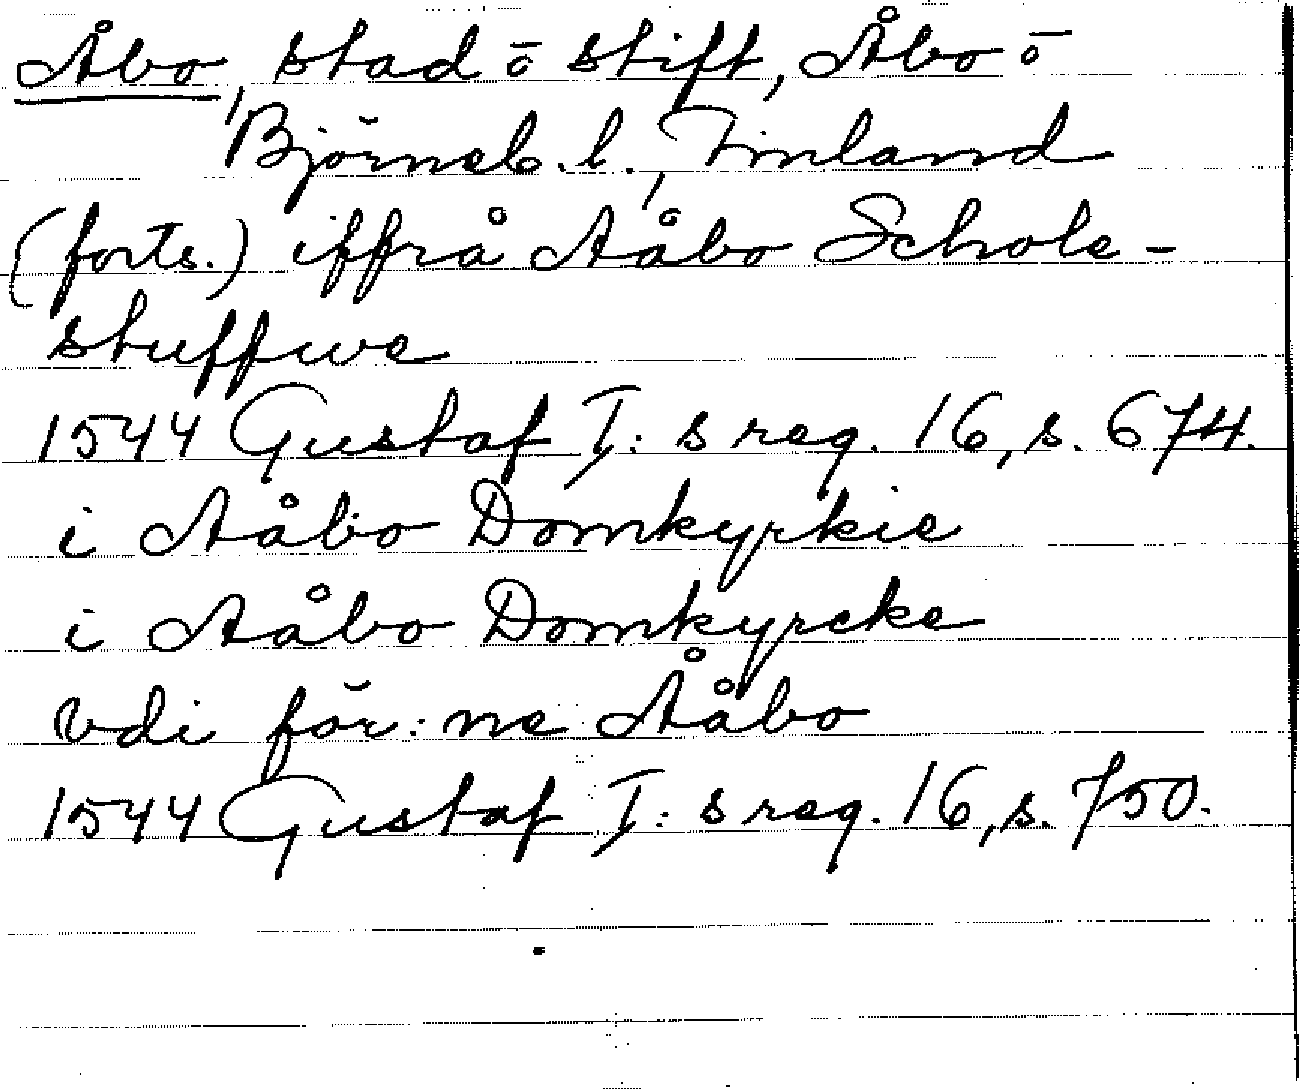 Åbo, stad ō stift, Åbo ō
Björneb. l., Finland
(forts.) iffrå Aåbo Schole-
stuffwe
1544 Gustaf I: s reg. 16, s. 674.
i Aåbo Domkyrkie
i Aåbo Domkyrcke
vdi för: ne Ååbo
1544 Gustaf I: s reg. 16, s. 750.